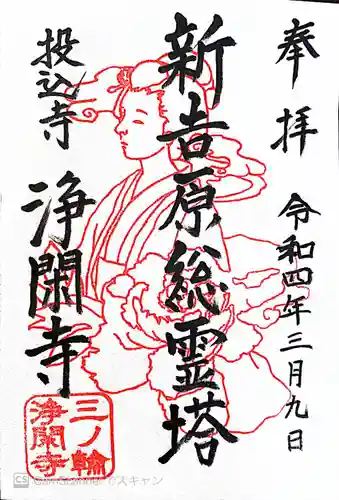 奉拝
令和四年三月九日
新吉原総霊塔
投込寺
浄閑寺
三ノ輪
浄閑寺
CS CamScanner でスキャン